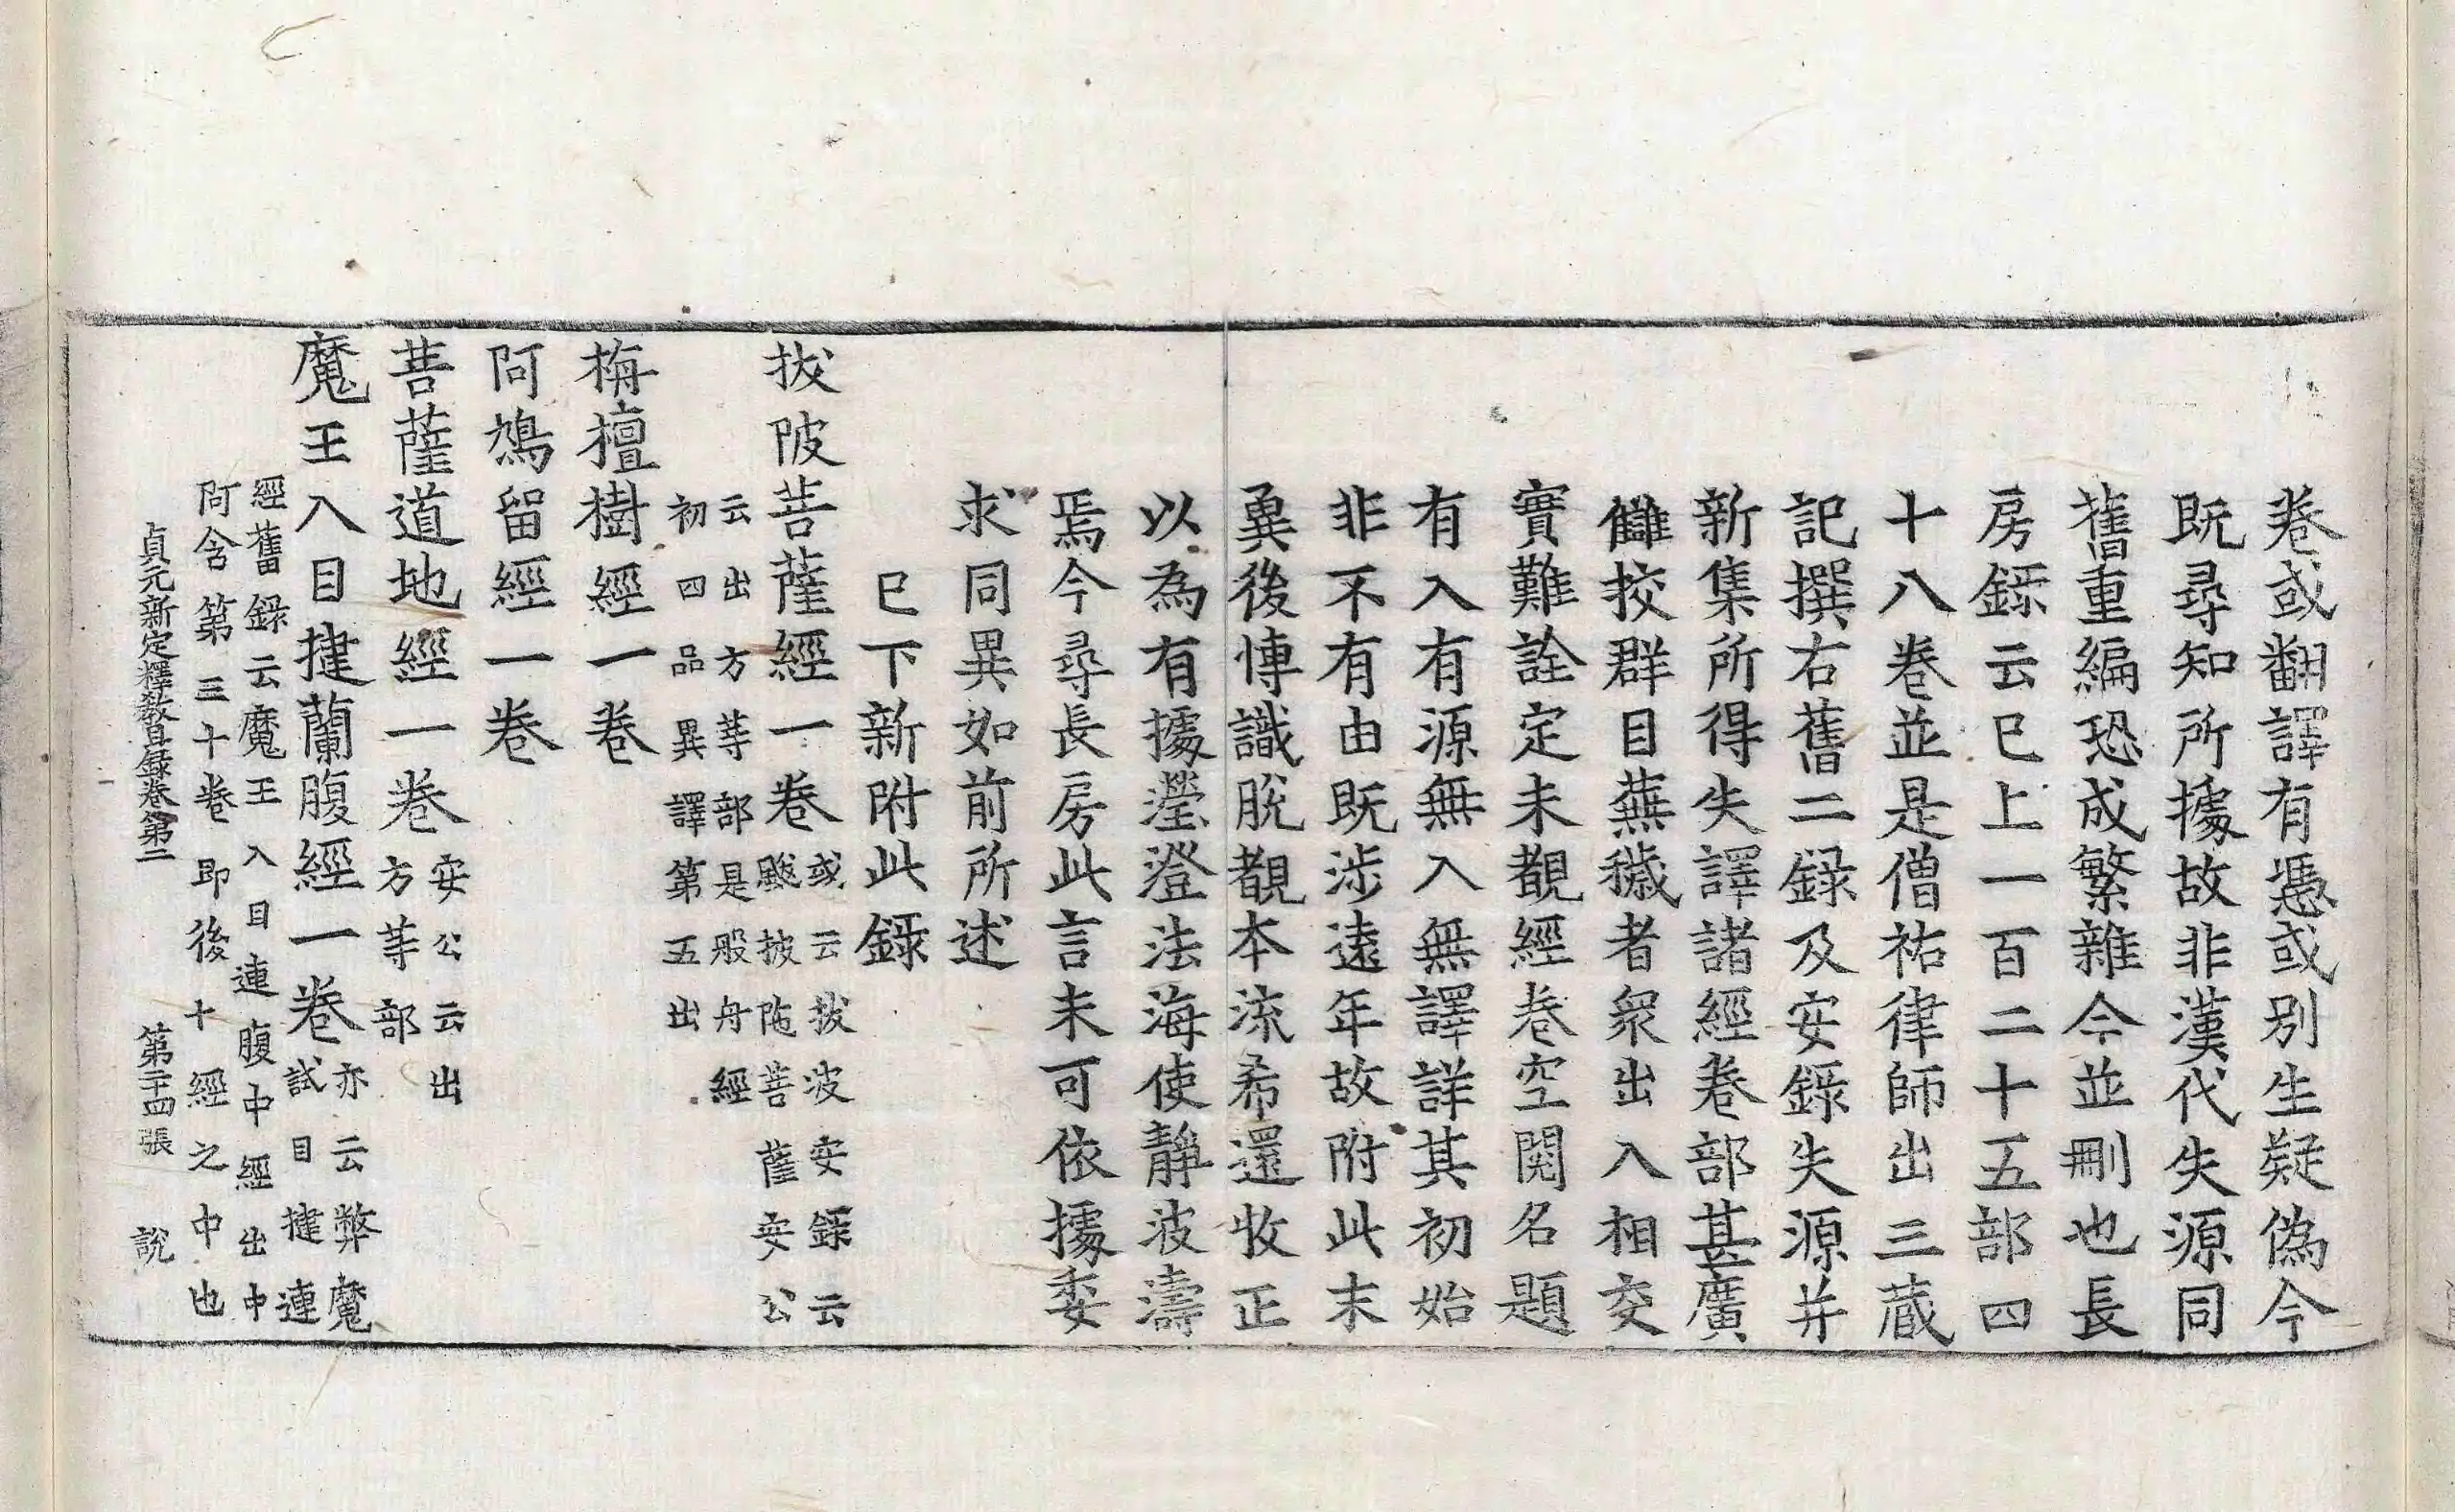 卷或翻譯有憑或別生疑偽今
既尋知所據故非漢代失源同
舊重編恐成繁雜今並刪也長
房錄云巳上一百二十五部四
十八卷並是僧祐律師出三藏
記撰右舊二録及安錄失源并
新集所得失譯諸經卷部甚廣
讎挍群目蕪穢者衆出入相交
實難詮定未覩經卷空閱名題
有入有源無入無譯詳其初始
非不有由既涉遠年故附此末
兾後博識脫覩本流希還收正
以為有據瀅澄法海使靜波濤
焉今尋長房此言未可依據委
求同異如前所述
巳下新附此錄
拔陂菩薩經一卷
或云拔波安錄云
颰披陁菩薩安公
云出方等部是般舟經
初四品異譯第五出
栴檀樹經一卷
阿鳩留經一卷
菩薩道地經一卷
安公云出
方等部
魔王入目揵蘭腹經一卷
亦云弊魔
試目揵連
經舊錄云魔王入目連腹中經出中
阿含第三十卷即後十經之中也
貞元新定釋教目録卷第二 第二十四張 說